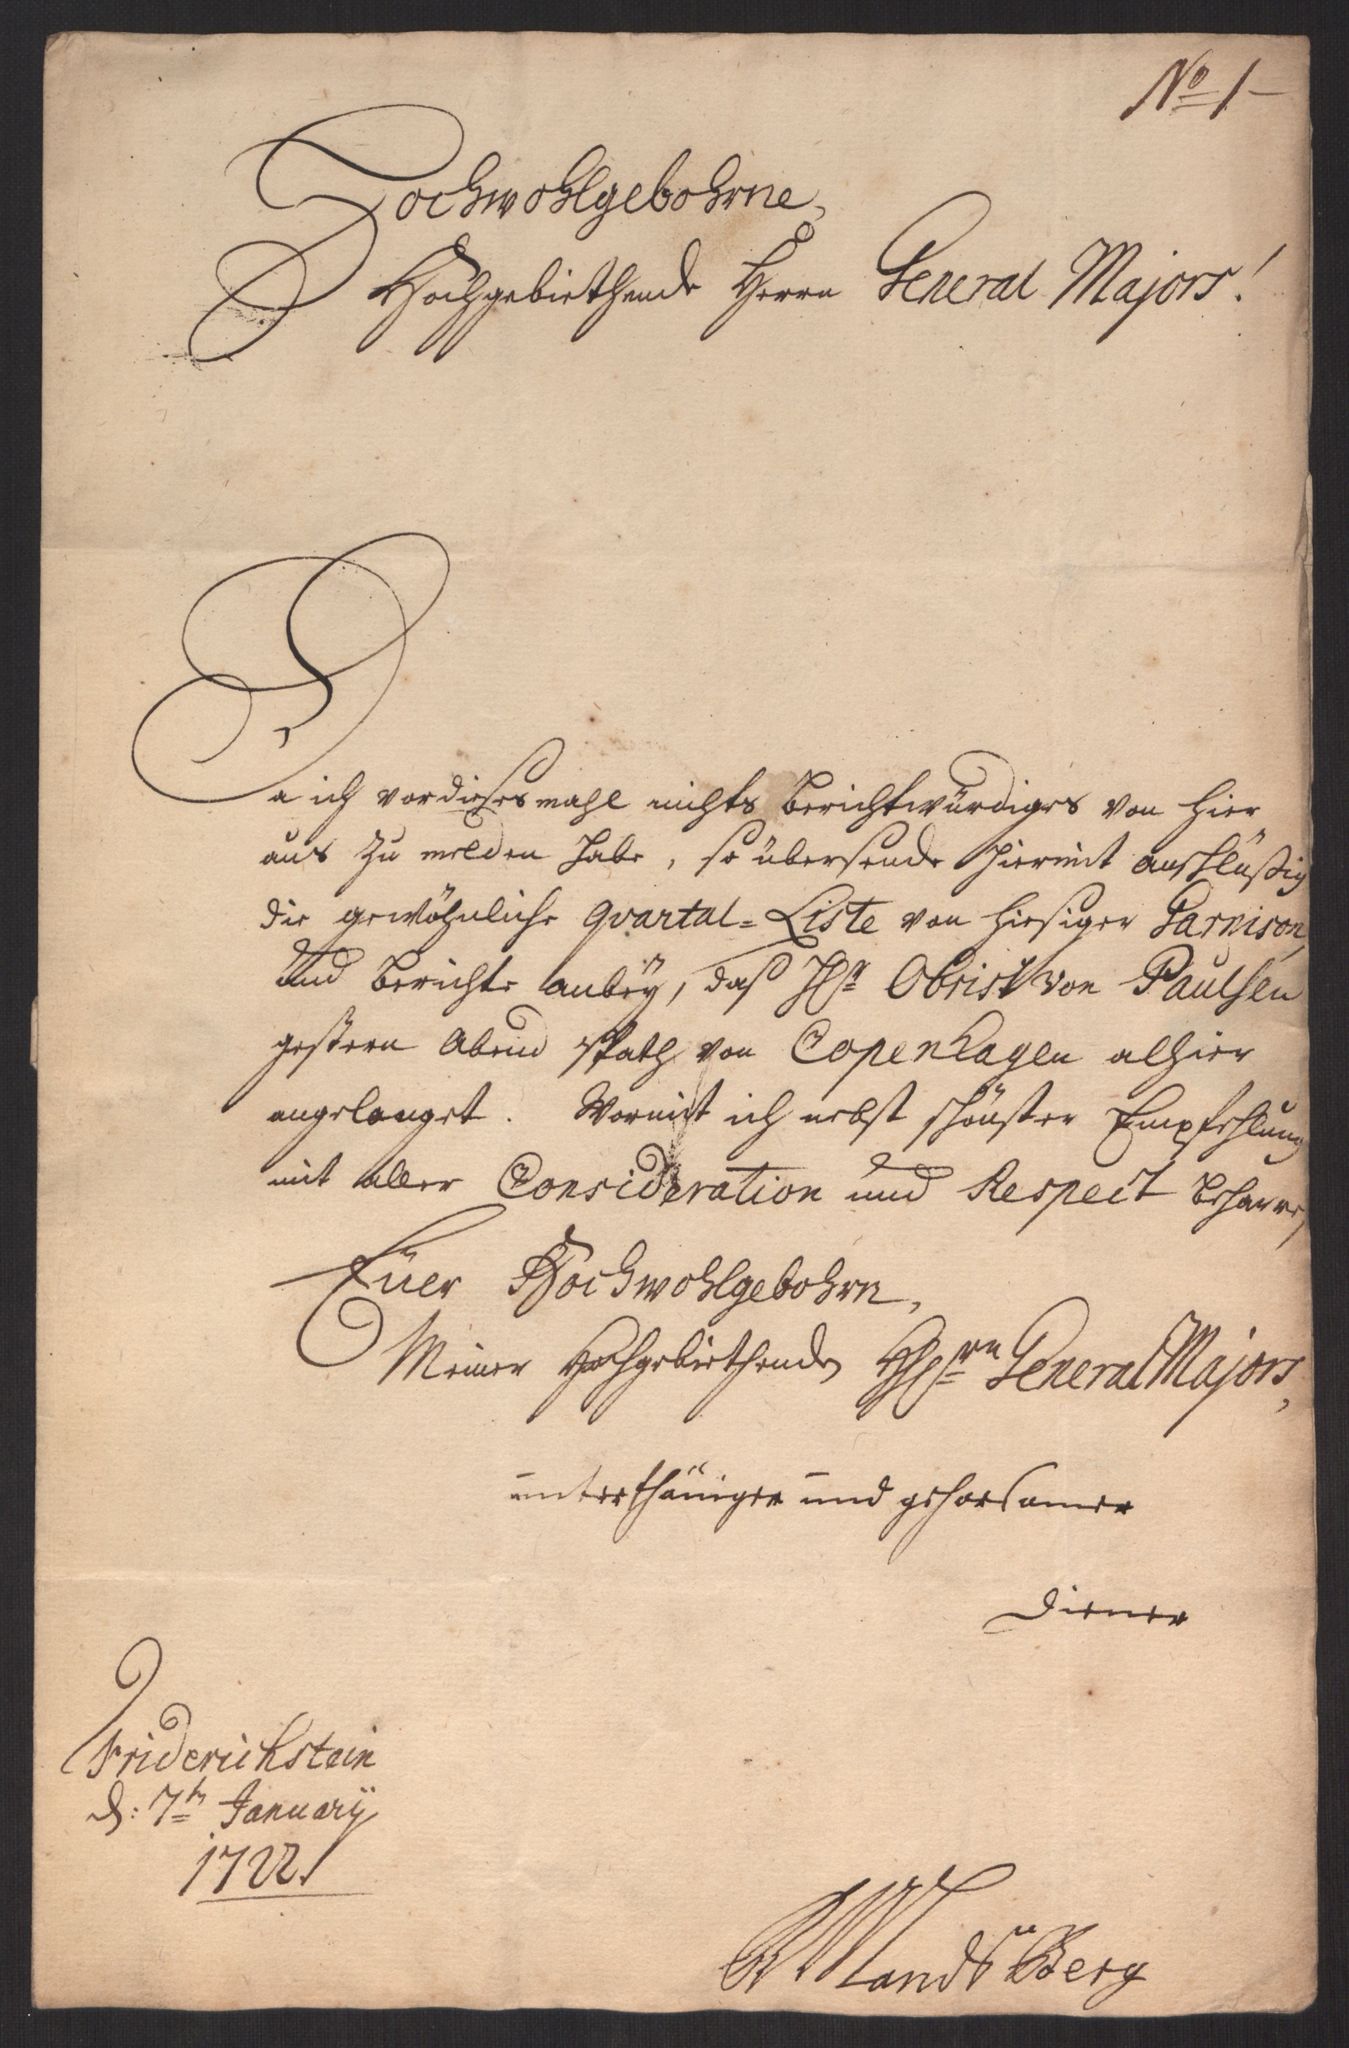 No 1
Hochwohlgebohrne,
Hochgebiethende Herrn General Majors!
Da ich vor dieses mahl nichts berichtwürdiges von hier
aus zu melden habe, so übersende hiermit
die gewöhnliche Qvartal-Liste von hiesiger Garnison,
Und berichte anbeÿ, daß Hr Obrist von Paulsen
gestern Abend spath von Copenhagen alhier
angelanget. Wormit ich nebst schönster Empfehlung
mit aller Consideration und Respect beharre,
Eüer Hochwohlgebohrn,
Meiner Hochgebiethenden HHrn General Majors,
unterthäniger und gehorsamer
Diener
Friderichstein
d: 7tn Januarÿ
1722.
Landsberg